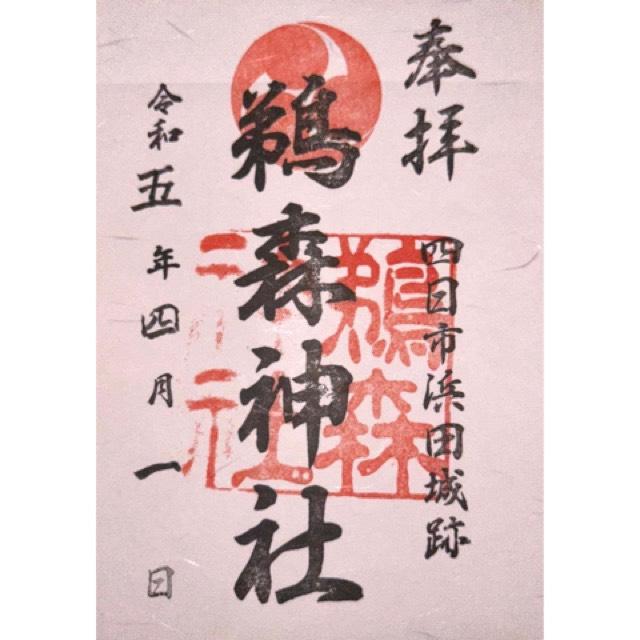 奉拝
四日市浜田城跡
鵜森神社
鵜森神社
令和五年四月一日